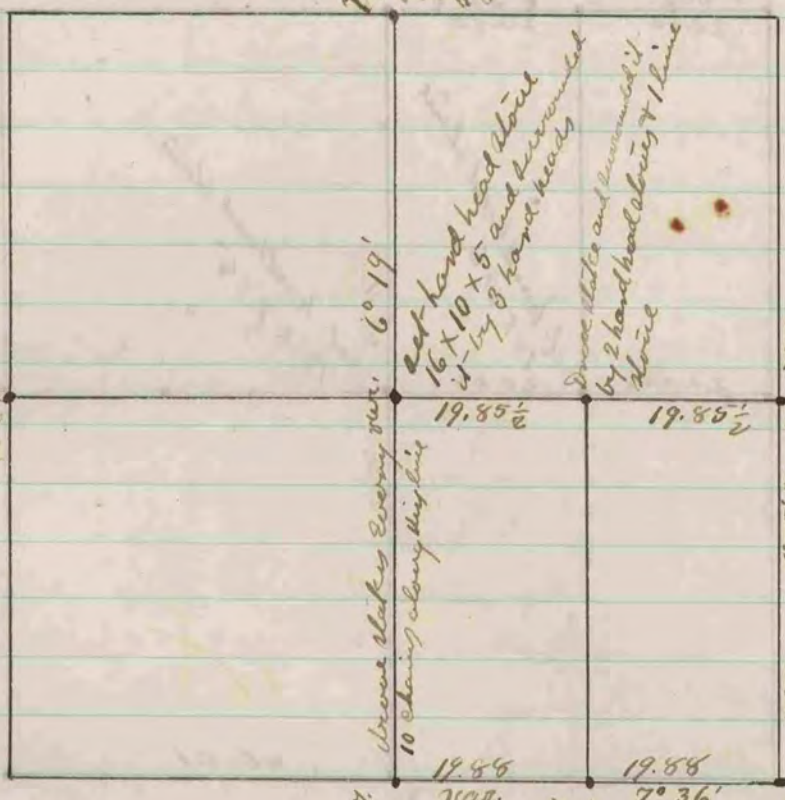 set hard head stone
16 x 10 x 5 and surrounded
it by 3 hard heads
Drove stake and surrounded it
by 2 hard head stones & 1 lime
stone
6° 19'
var.
drove stakes every
10 chains along this line
19.85½
19.85½
19.88
19.88
var.
7° 36'